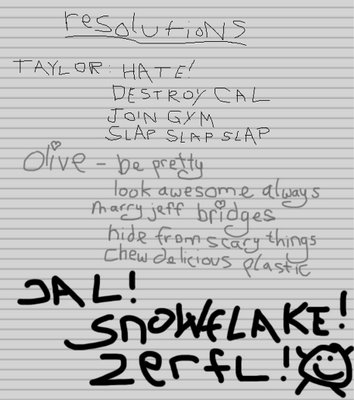 resolutioNS
TAYLOR: HATE!
DESTROY CAL
JOIN GYM
SLAP SLAP SLAP
Olive - be pretty
look awesome always
marry jeff bridges
hide from scary things
Chew delicious plastic
CAL!
SNOWFLAKE!
ZERFL!